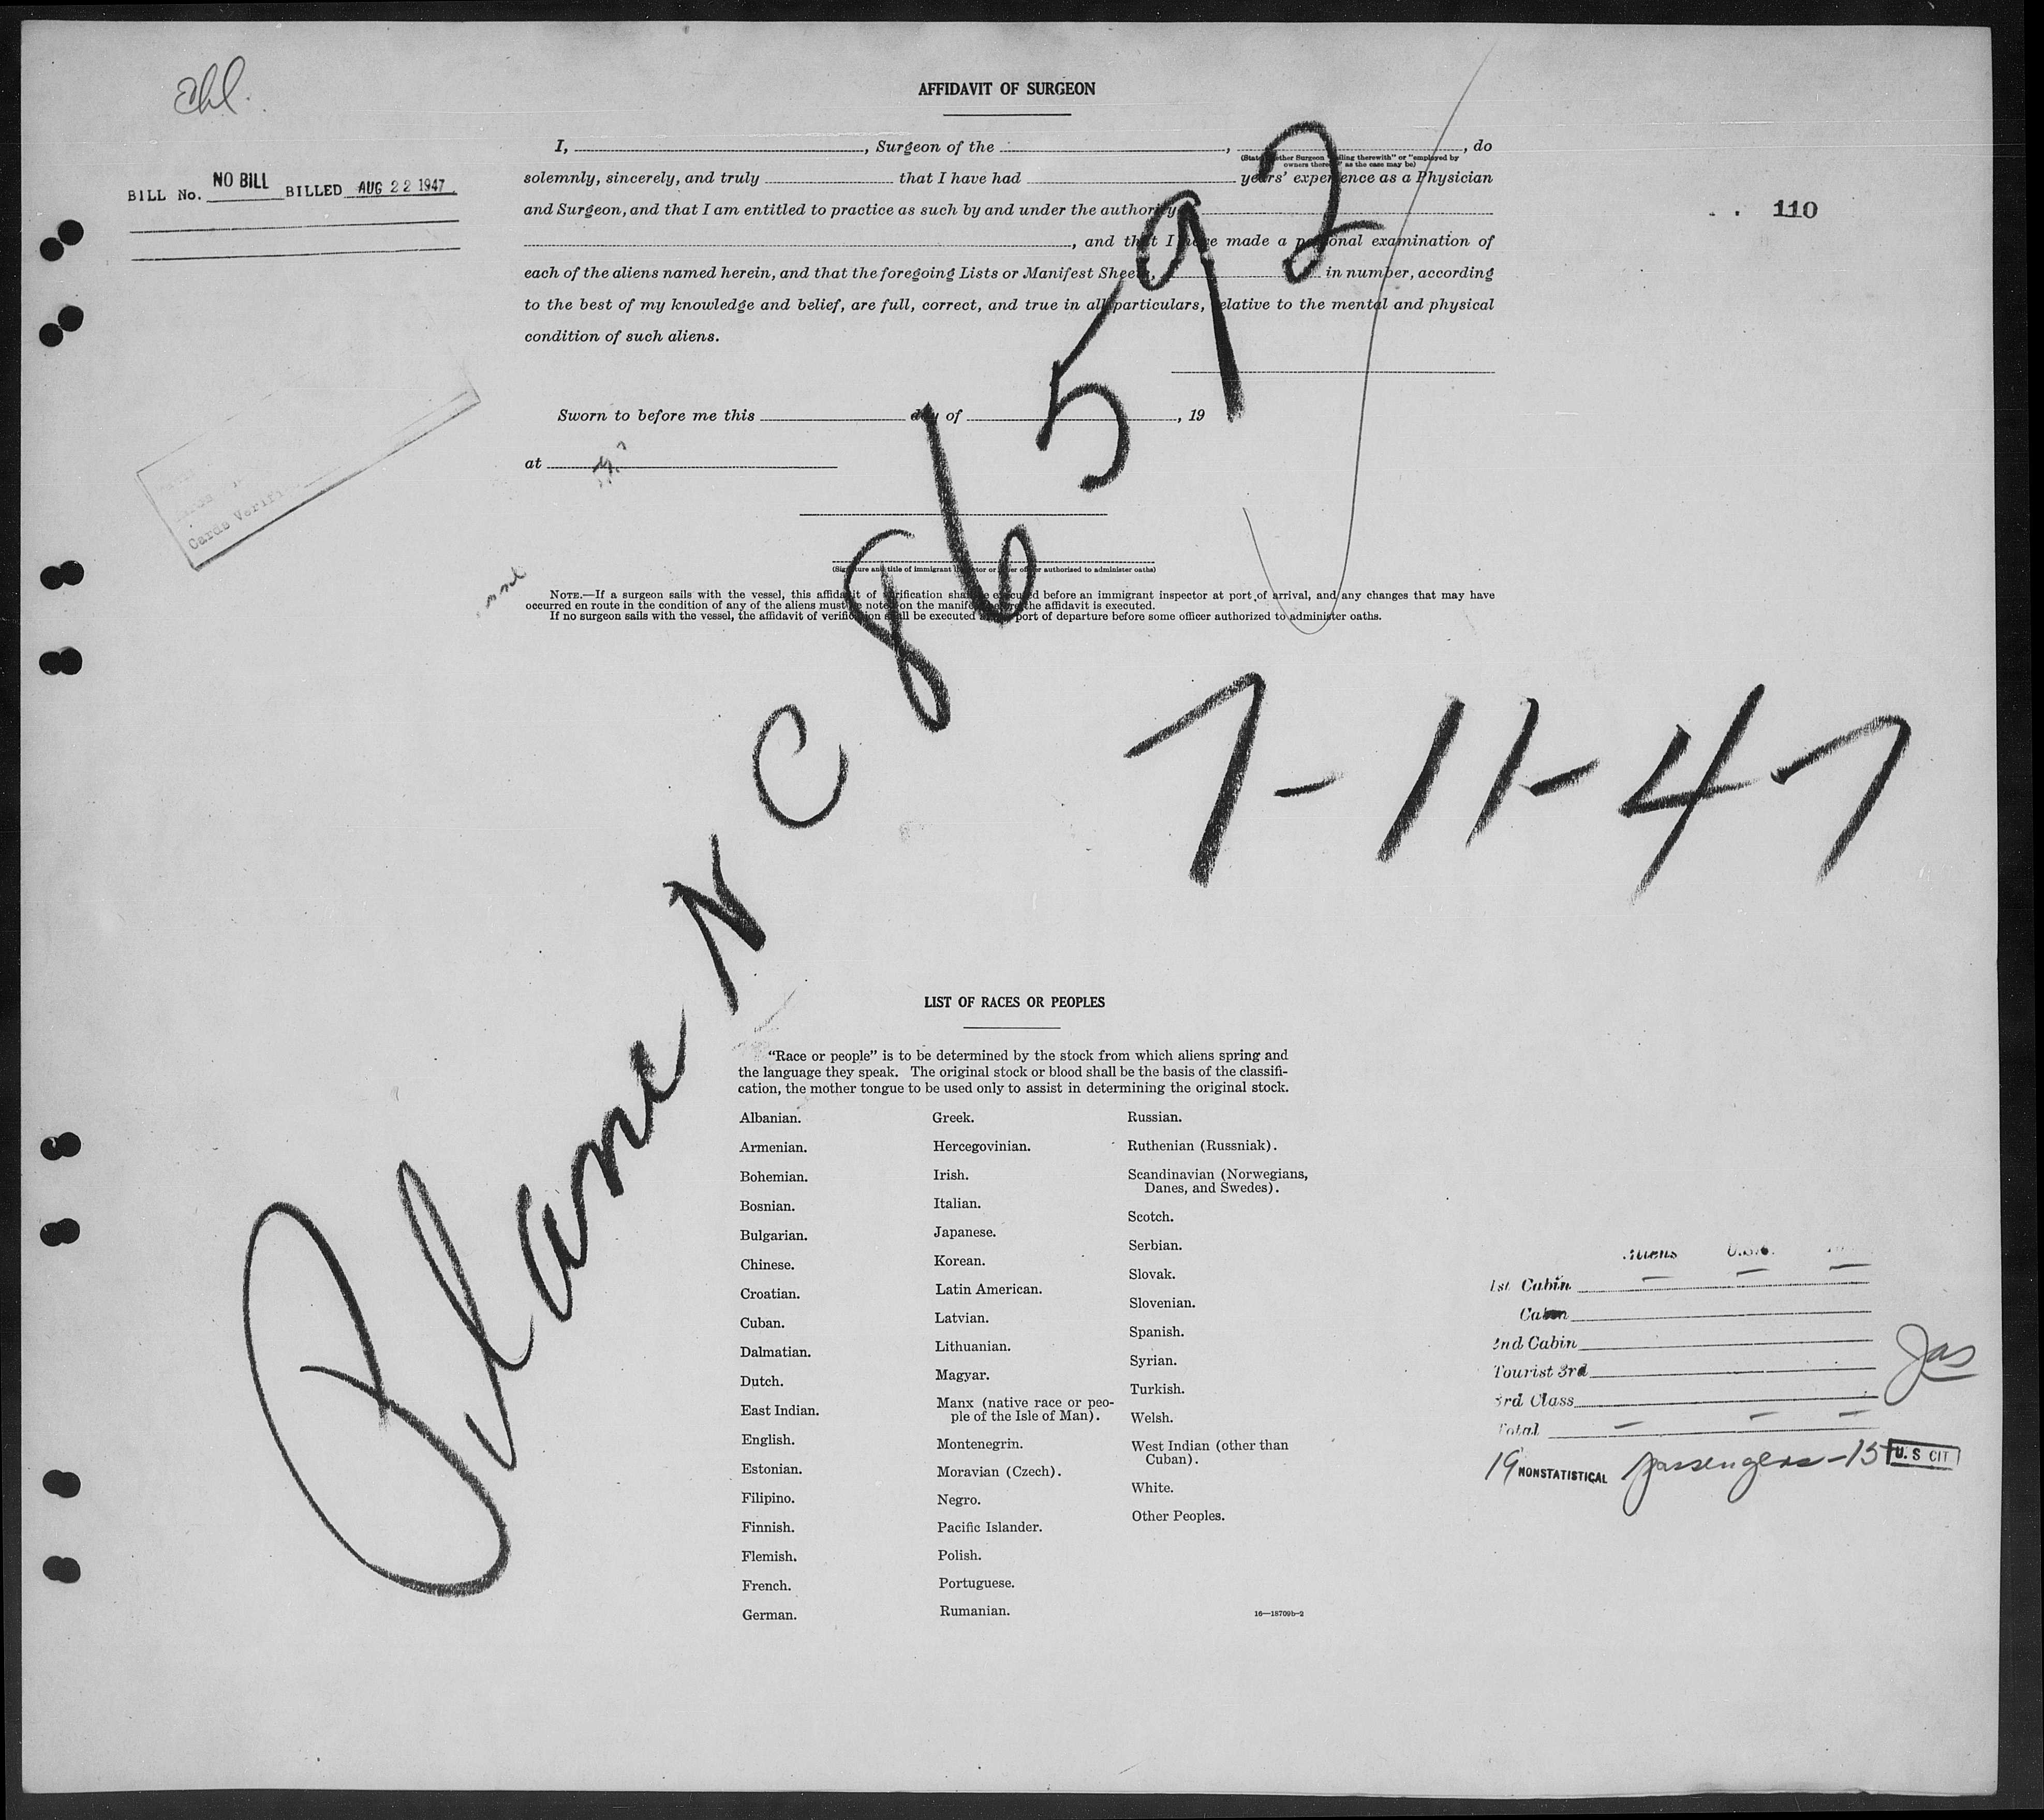 AFFIDAVIT OF SURGEON
I, , Surgeon of the , , do
(State whether Surgeon "sailing therewith" or "employed by
owners thereof" as the case may be)
solemnly, sincerely, and truly that I have had years' experience as a Physician
and Surgeon, and that I am entitled to practice as such by and under the authority
, and that I have made a personal examination of
each of the aliens named herein, and that the foregoing Lists or Manifest Sheets, in number, according
to the best of my knowledge and belief, are full, correct, and true in all particulars, relative to the mental and physical
condition of such aliens.
BILL No. NO BILL BILLED AUG 22 1947
110
Sworn to before me this day of , 19
at
Cards Verifi
(Signature and title of immigrant inspector or other officer authorized to administer oaths)
NOTE.—If a surgeon sails with the vessel, this affidavit of verification shall be executed before an immigrant inspector at port of arrival, and any changes that may have
occurred en route in the condition of any of the aliens must be noted on the manifest before the affidavit is executed.
If no surgeon sails with the vessel, the affidavit of verification shall be executed at port of departure before some officer authorized to administer oaths.
Plane NC 86592
7-11-47
LIST OF RACES OR PEOPLES
"Race or people" is to be determined by the stock from which aliens spring and
the language they speak. The original stock or blood shall be the basis of the classifi-
cation, the mother tongue to be used only to assist in determining the original stock.
Albanian.
Armenian.
Bohemian.
Bosnian.
Bulgarian.
Chinese.
Croatian.
Cuban.
Dalmatian.
Dutch.
East Indian.
English.
Estonian.
Filipino.
Finnish.
Flemish.
French.
German.
Greek.
Hercegovinian.
Irish.
Italian.
Japanese.
Korean.
Latin American.
Latvian.
Lithuanian.
Magyar.
Manx (native race or peo-
ple of the Isle of Man).
Montenegrin.
Moravian (Czech).
Negro.
Pacific Islander.
Polish.
Portuguese.
Rumanian.
Russian.
Ruthenian (Russniak).
Scandinavian (Norwegians,
Danes, and Swedes).
Scotch.
Serbian.
Slovak.
Slovenian.
Spanish.
Syrian.
Turkish.
Welsh.
West Indian (other than
Cuban).
White.
Other Peoples.
16—18709b-2
Aliens U.S.C.
1st Cabin — — —
Cabin
2nd Cabin
Tourist 3rd
3rd Class
Total — — —
Jas
19 NONSTATISTICAL passengers - 15 U. S CIT